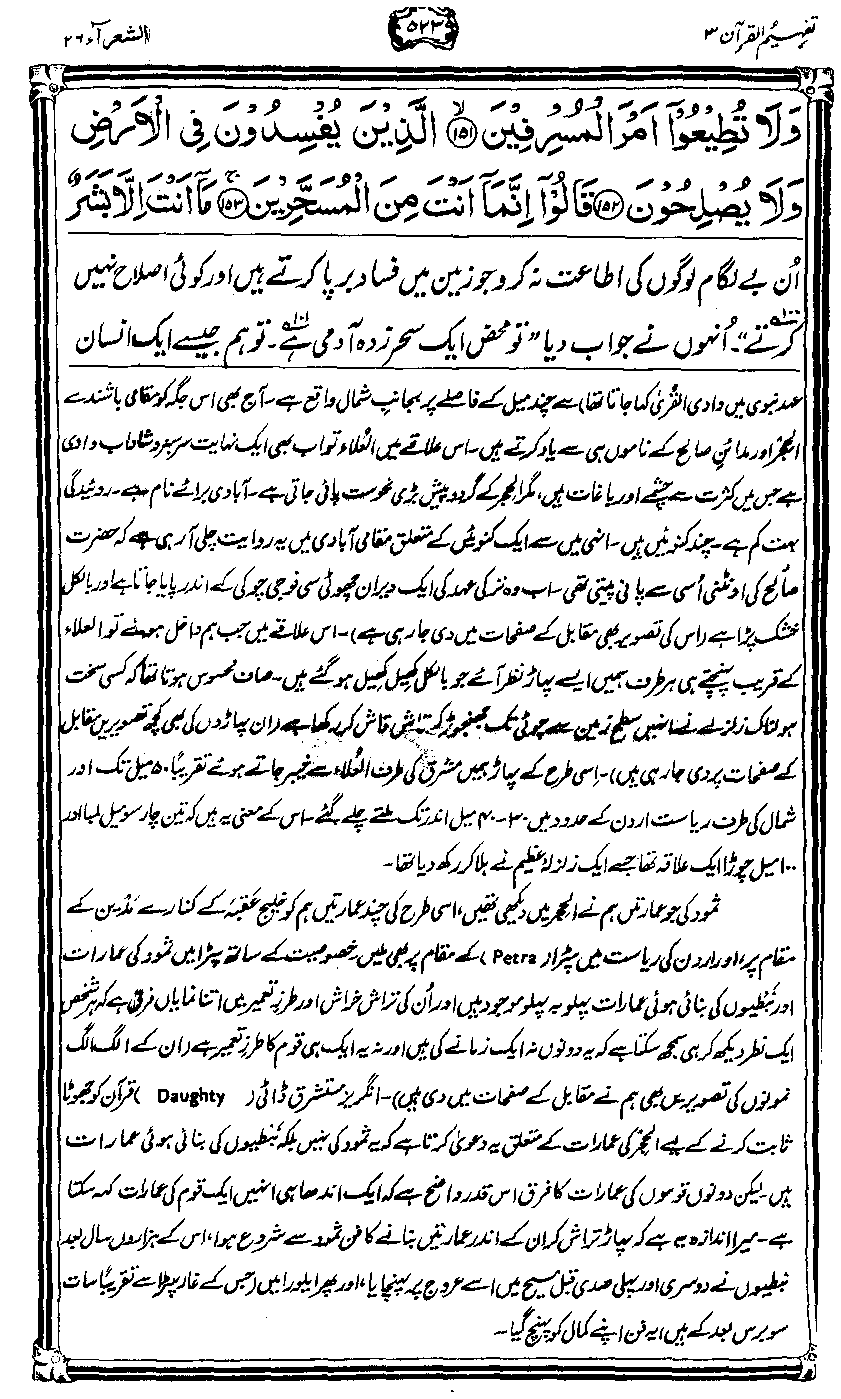 تفہیم القرآن ۳
۵۲۳
الشعرآء ۲۶
وَلَا تُطِيْعُوْٓا اَمْرَ الْمُسْرِفِيْنَ ﴿۱۵۱﴾ۙ الَّذِيْنَ يُفْسِدُوْنَ فِى الْاَرْضِ
وَلَا يُصْلِحُوْنَ ﴿۱۵۲﴾ قَالُوْٓا اِنَّمَآ اَنْتَ مِنَ الْمُسَحَّرِيْنَ ﴿۱۵۳﴾ۚ مَآ اَنْتَ اِلَّا بَشَرٌ
اُن بے لگام لوگوں کی اطاعت نہ کرو جو زمین میں فساد برپا کرتے ہیں اور کوئی اصلاح نہیں
کرتے۱۰۰؎"۔ اُنہوں نے جواب دیا "تو محض ایک سحر زدہ آدمی ہے۱۰۱؎۔ تو ہم جیسے ایک انسان
عہد نبوی میں وادی القُریٰ کہا جاتا تھا) سے چند میل کے فاصلے پر بجانبِ شمال واقع ہے۔ آج بھی اس جگہ کو مقامی باشندے
الحِجر اور مدائنِ صالح کے ناموں ہی سے یاد کرتے ہیں۔ اس علاقے میں العُلاء تو اب بھی ایک نہایت سرسبز و شاداب وادی
ہے جس میں کثرت سے چشمے اور باغات ہیں، مگر الحجر کے گرد و پیش بڑی نحوست پائی جاتی ہے۔ آبادی برائے نام ہے۔ روئیدگی
بہت کم ہے۔ چند کنوئیں ہیں۔ انہی میں سے ایک کنوئیں کے متعلق مقامی آبادی میں یہ روایت چلی آ رہی ہے کہ حضرت
صالح کی اونٹنی اُسی سے پانی پیتی تھی۔ اب وہ ترکی عہد کی ایک ویران چھوٹی سی فوجی چوکی کے اندر پایا جاتا ہے اور بالکل
خشک پڑا ہے (اس کی تصویر بھی مقابل کے صفحات میں دی جا رہی ہے)۔ اس علاقے میں جب ہم داخل ہوئے تو العلاء
کے قریب پہنچتے ہی ہر طرف ہمیں ایسے پہاڑ نظر آئے جو بالکل کھیل کھیل ہو گئے ہیں۔ صاف محسوس ہوتا تھا کہ کسی سخت
ہولناک زلزلے نے انہیں سطح زمین سے چوٹی تک جھنجھوڑ کر قاش قاش کر رکھا ہے (ان پہاڑوں کی بھی کچھ تصویریں مقابل
کے صفحات پر دی جا رہی ہیں)۔ اِسی طرح کے پہاڑ ہمیں مشرق کی طرف العُلاء سے خیبر جاتے ہوئے تقریبًا ۵۰ میل تک اور
شمال کی طرف ریاست اردن کے حدود میں ۳۰-۴۰ میل اندر تک ملتے چلے گئے۔ اس کے معنی یہ ہیں کہ تین چار سو میل لمبا اور
۱۰۰ میل چوڑا ایک علاقہ تھا جسے ایک زلزلۂ عظیم نے ہلا کر رکھ دیا تھا۔
ثمود کی جو عمارتیں ہم نے الحِجر میں دیکھی تھیں، اسی طرح کی چند عمارتیں ہم کو خلیج عَقَبہ کے کنارے مَدْیَن کے
مقام پر، اور اردن کی ریاست میں پٹرا (Petra) کے مقام پر بھی ملیں۔ خصوصیت کے ساتھ پٹرا میں ثمود کی عمارات
اور نَبطیوں کی بنائی ہوئی عمارات پہلو بہ پہلو موجود ہیں اور اُن کی تراش خراش اور طرزِ تعمیر میں اتنا نمایاں فرق ہے کہ ہر شخص
ایک نظر دیکھ کر ہی سمجھ سکتا ہے کہ یہ دونوں نہ ایک زمانے کی ہیں اور نہ یہ ایک ہی قوم کا طرزِ تعمیر ہے (ان کے الگ الگ
نمونوں کی تصویریں بھی ہم نے مقابل کے صفحات میں دی ہیں)۔ انگریز مستشرق ڈاٹی (Daughty) قرآن کو جھوٹا
ثابت کرنے کے لیے الحِجْر کی عمارات کے متعلق یہ دعویٰ کرتا ہے کہ یہ ثمود کی نہیں بلکہ نَبطیوں کی بنائی ہوئی عمارات
ہیں۔ لیکن دونوں قوموں کی عمارات کا فرق اس قدر واضح ہے کہ ایک اندھا ہی انہیں ایک قوم کی عمارات کہہ سکتا
ہے۔ میرا اندازہ یہ ہے کہ پہاڑ تراش کر ان کے اندر عمارتیں بنانے کا فن ثمود سے شروع ہوا، اس کے ہزاروں سال بعد
نبطیوں نے دوسری اور پہلی صدی قبل مسیح میں اسے عروج پر پہنچایا، اور پھر ایلورا میں (جس کے غار پٹرا سے تقریبًا سات
سو برس بعد کے ہیں) یہ فن اپنے کمال کو پہنچ گیا۔